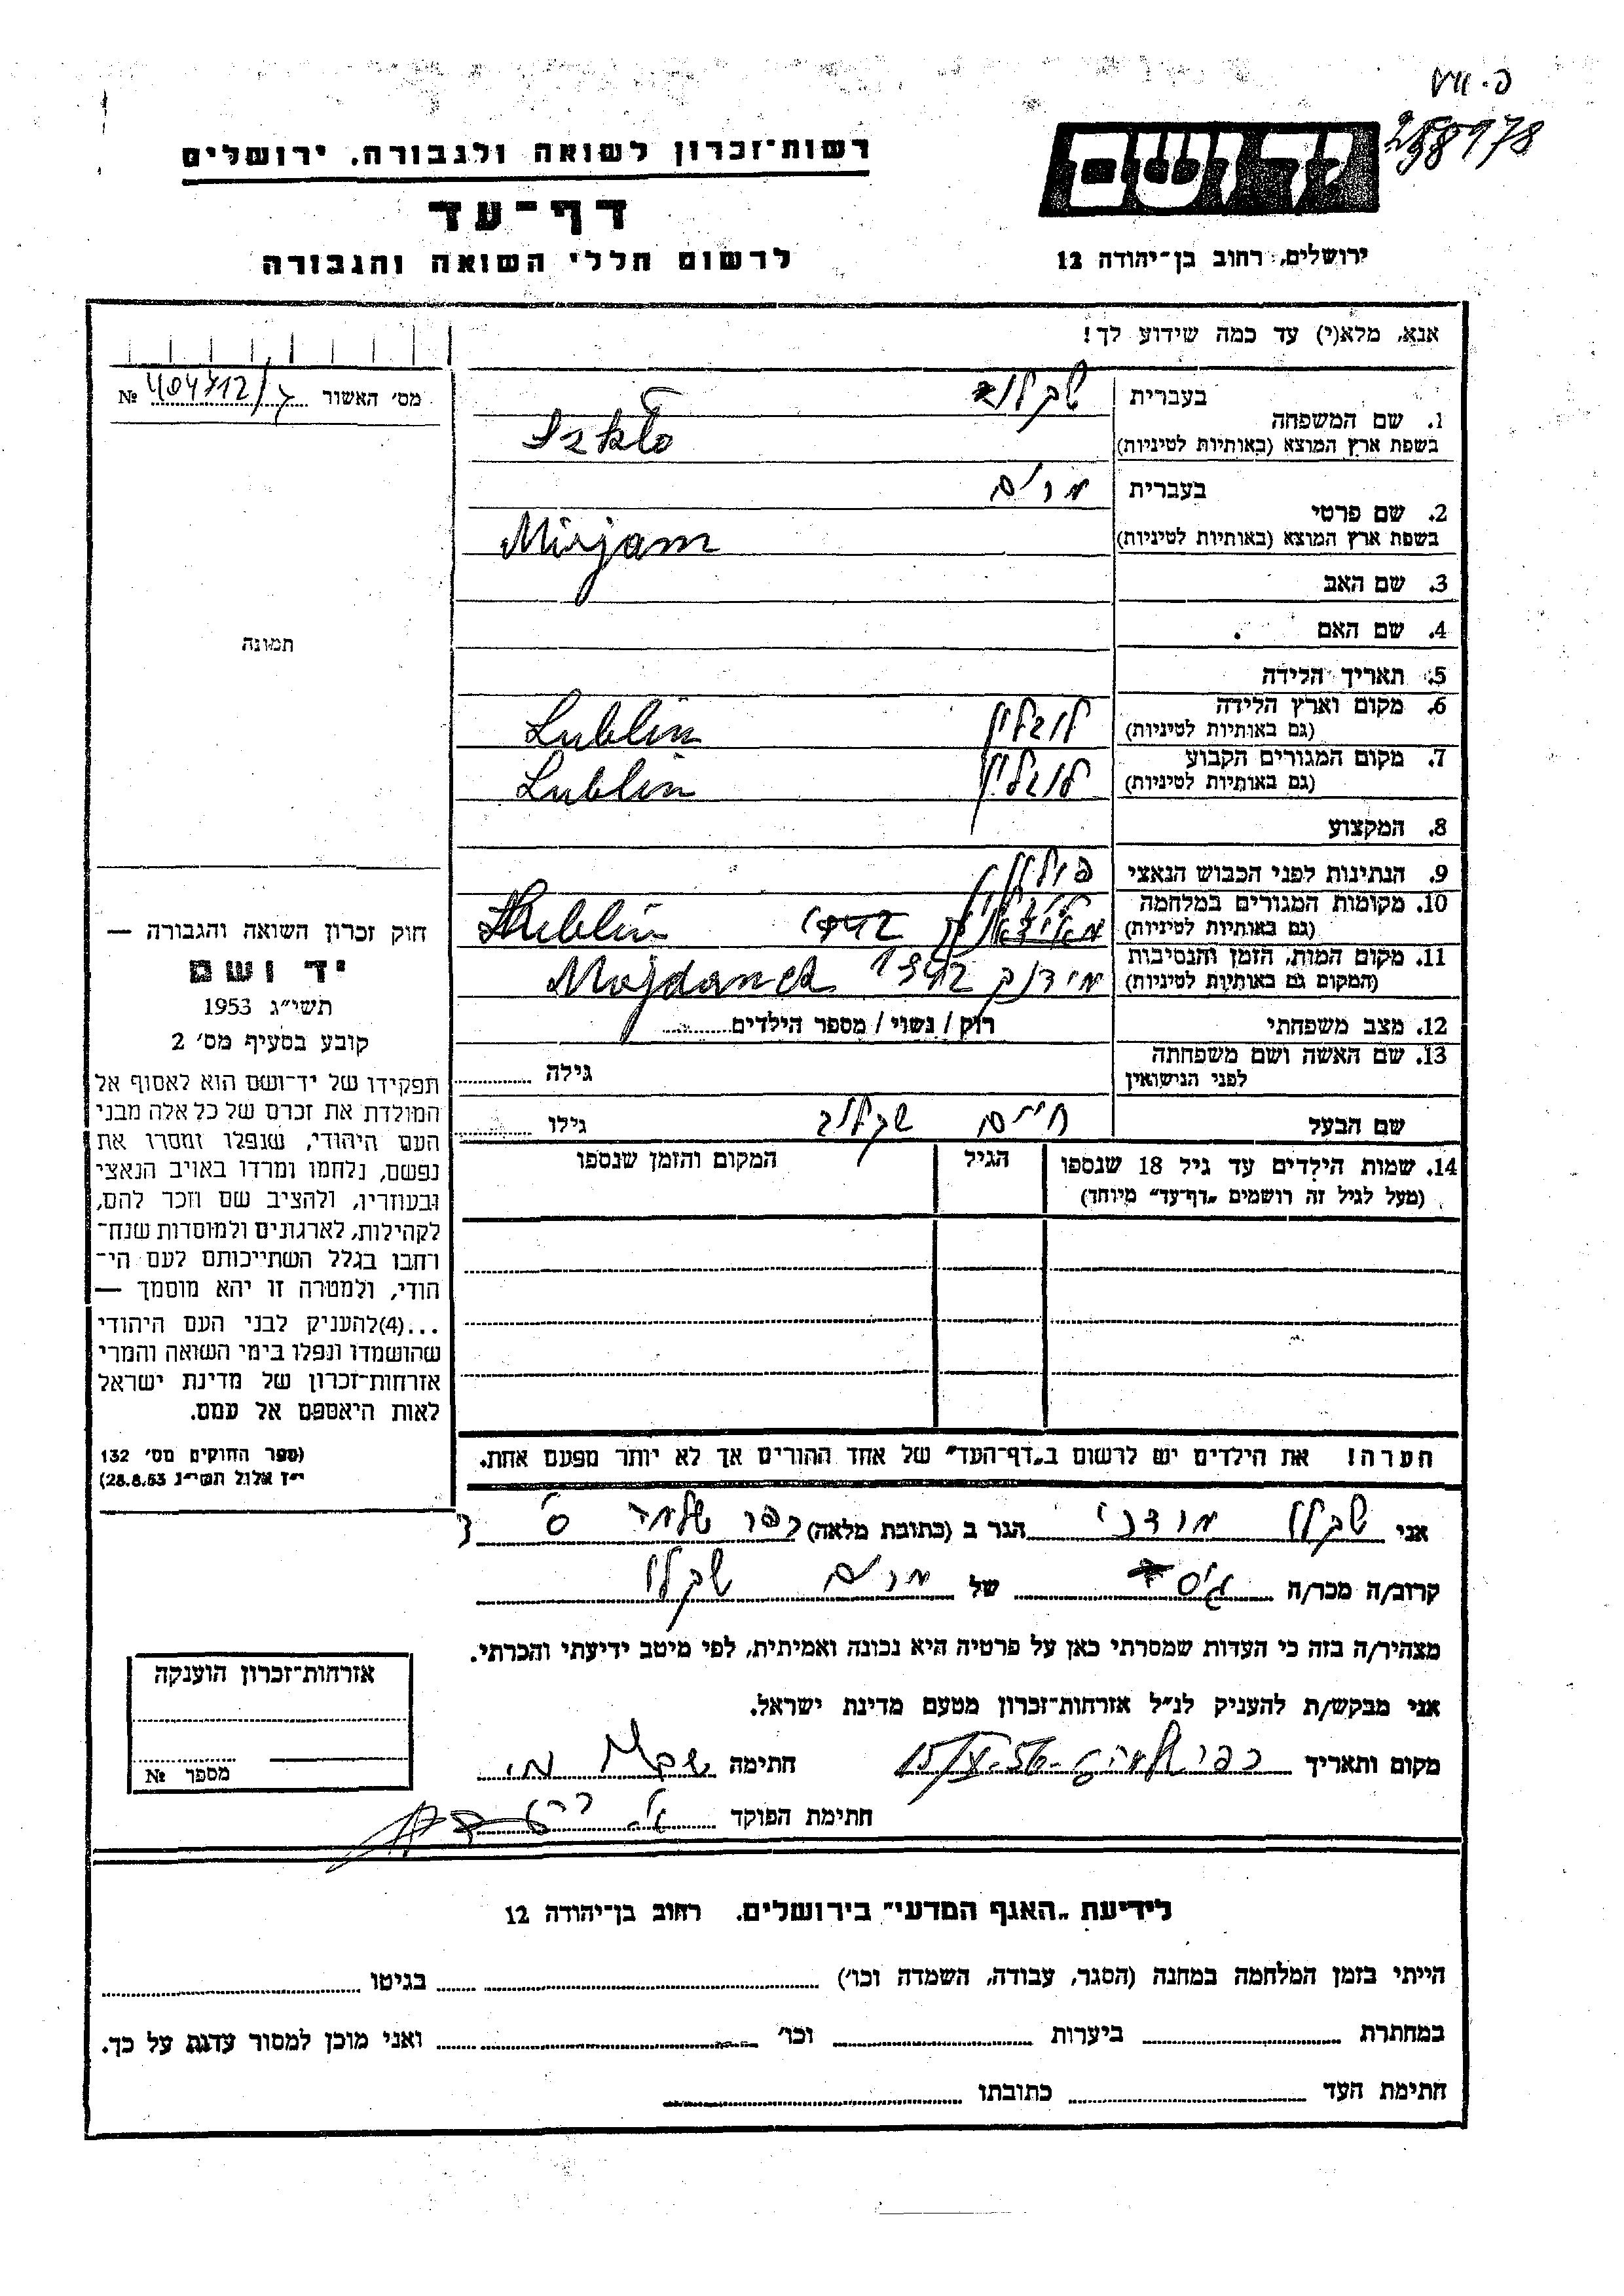 258978
רשות־זכרון לשואה ולגבורה, ירושלים
יד ושם
דף־עד
לרשום חללי השואה והגבורה
ירושלים, רחוב בן־יהודה 12
אנא, מלא(י) עד כמה שידוע לך!
מס׳ האשור №
1. שם המשפחה
בעברית
בשפת ארץ המוצא (באותיות לטיניות) Szklo
2. שם פרטי
בעברית מרים
בשפת ארץ המוצא (באותיות לטיניות) Mirjam
3. שם האב
4. שם האם
תמונה
5. תאריך הלידה
6. מקום וארץ הלידה לובלין Lublin
(גם באותיות לטיניות)
7. מקום המגורים הקבוע לובלין Lublin
(גם באותיות לטיניות)
8. המקצוע
9. הנתינות לפני הכבוש הנאצי פולין
10. מקומות המגורים במלחמה Lublin
(גם באותיות לטיניות)
11. מקום המות, הזמן והנסיבות מידנק 1942 Majdanek
(המקום גם באותיות לטיניות)
12. מצב משפחתי רוק / נשוי / מספר הילדים
13. שם האשה ושם משפחתה
לפני הנישואין גילה
שם הבעל חיים גילו
14. שמות הילדים עד גיל 18 שנספו הגיל המקום והזמן שנספו
(מעל לגיל זה רושמים „דף־עד״ מיוחד)
חוק זכרון השואה והגבורה —
יד ושם
תשי״ג 1953
קובע בסעיף מס׳ 2
תפקידו של יד־ושם הוא לאסוף אל
המולדת את זכרם של כל אלה מבני
העם היהודי, שנפלו ומסרו את
נפשם, נלחמו ומרדו באויב הנאצי
ובעוזריו, ולהציב שם וזכר להם,
לקהילות, לארגונים ולמוסדות שנח־
רחבו בגלל השתייכותם לעם הי־
הודי, ולמטרה זו יהא מוסמך —
...(4)להעניק לבני העם היהודי
שהושמדו ונפלו בימי השואה והמרי
אזרחות־זכרון של מדינת ישראל
לאות היאספם אל עמם.
(ספר החוקים מס׳ 132
י״ז אלול תשי״ג 28.8.53)
הערה! את הילדים יש לרשום ב„דף־העד״ של אחד ההורים אך לא יותר מפעם אחת.
אני שקלו מרדכי הגר ב (כתובת מלאה) כפר שלמה
קרוב/ה מכר/ה גיסה של מרים שקלו
מצהיר/ה בזה כי העדות שמסרתי כאן על פרטיה היא נכונה ואמיתית, לפי מיטב ידיעתי והכרתי.
אני מבקש/ת להעניק לנ״ל אזרחות־זכרון מטעם מדינת ישראל.
מקום ותאריך חתימה
חתימת הפוקד
אזרחות־זכרון הוענקה
מספר №
לידיעת „האגף המדעי״ בירושלים. רחוב בן־יהודה 12
הייתי בזמן המלחמה במחנה (הסגר, עבודה, השמדה וכו׳) בגיטו
במחתרת ביערות וכו׳ ואני מוכן למסור עדות על כך.
חתימת העד כתובתו